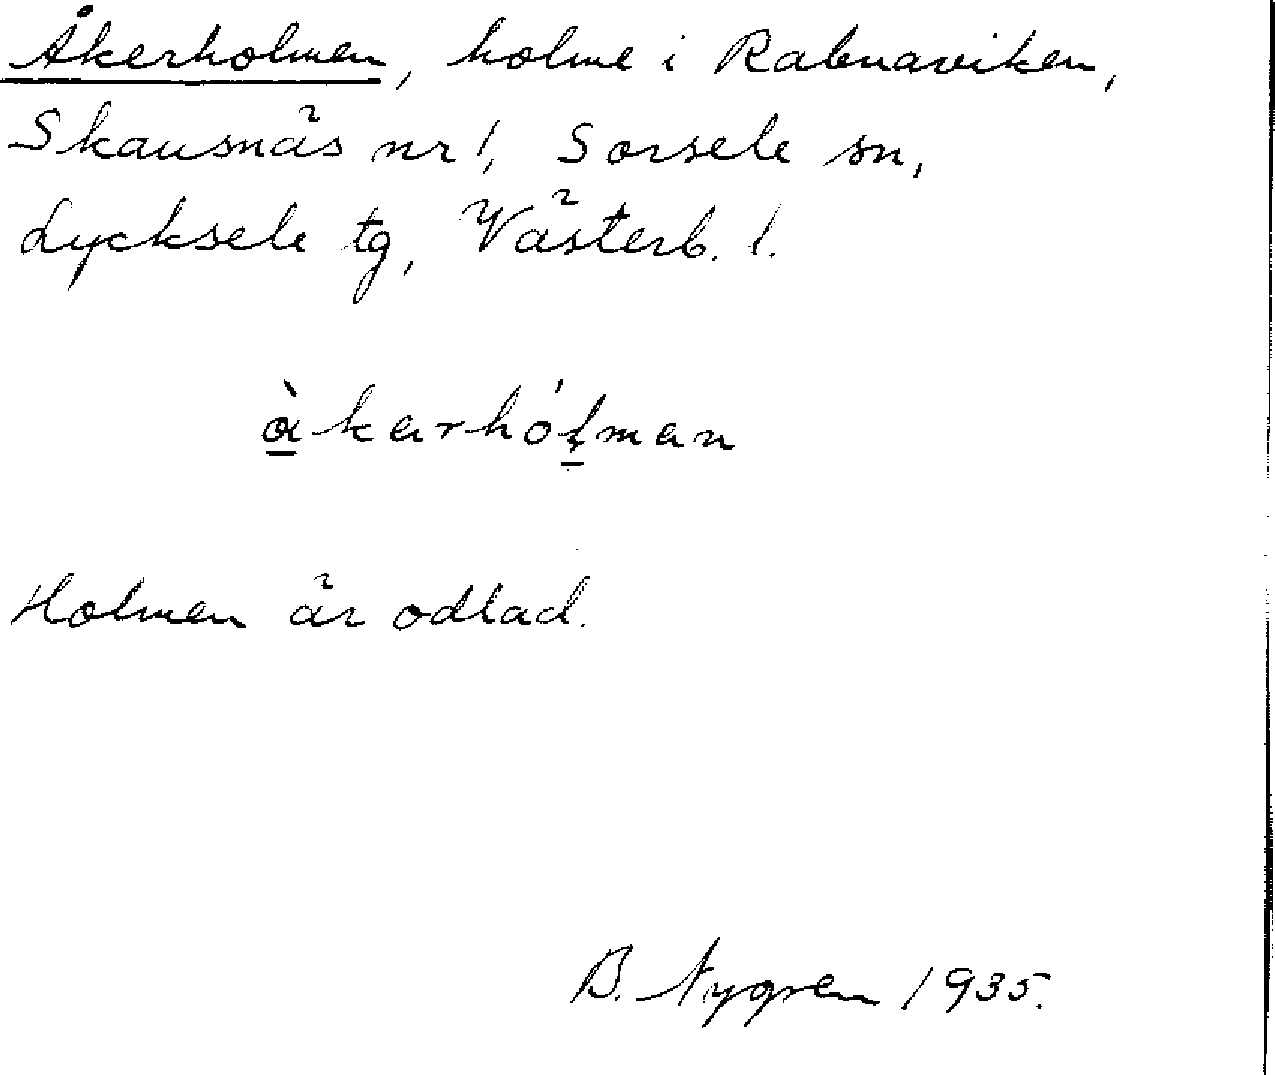 Åkerholmen, holme i Rabnaviken,
Skausnäs nr 1, Sorsele sn,
Lycksele tg, Västerb. l.
Holmen är odlad.
B. Nygren 1935.